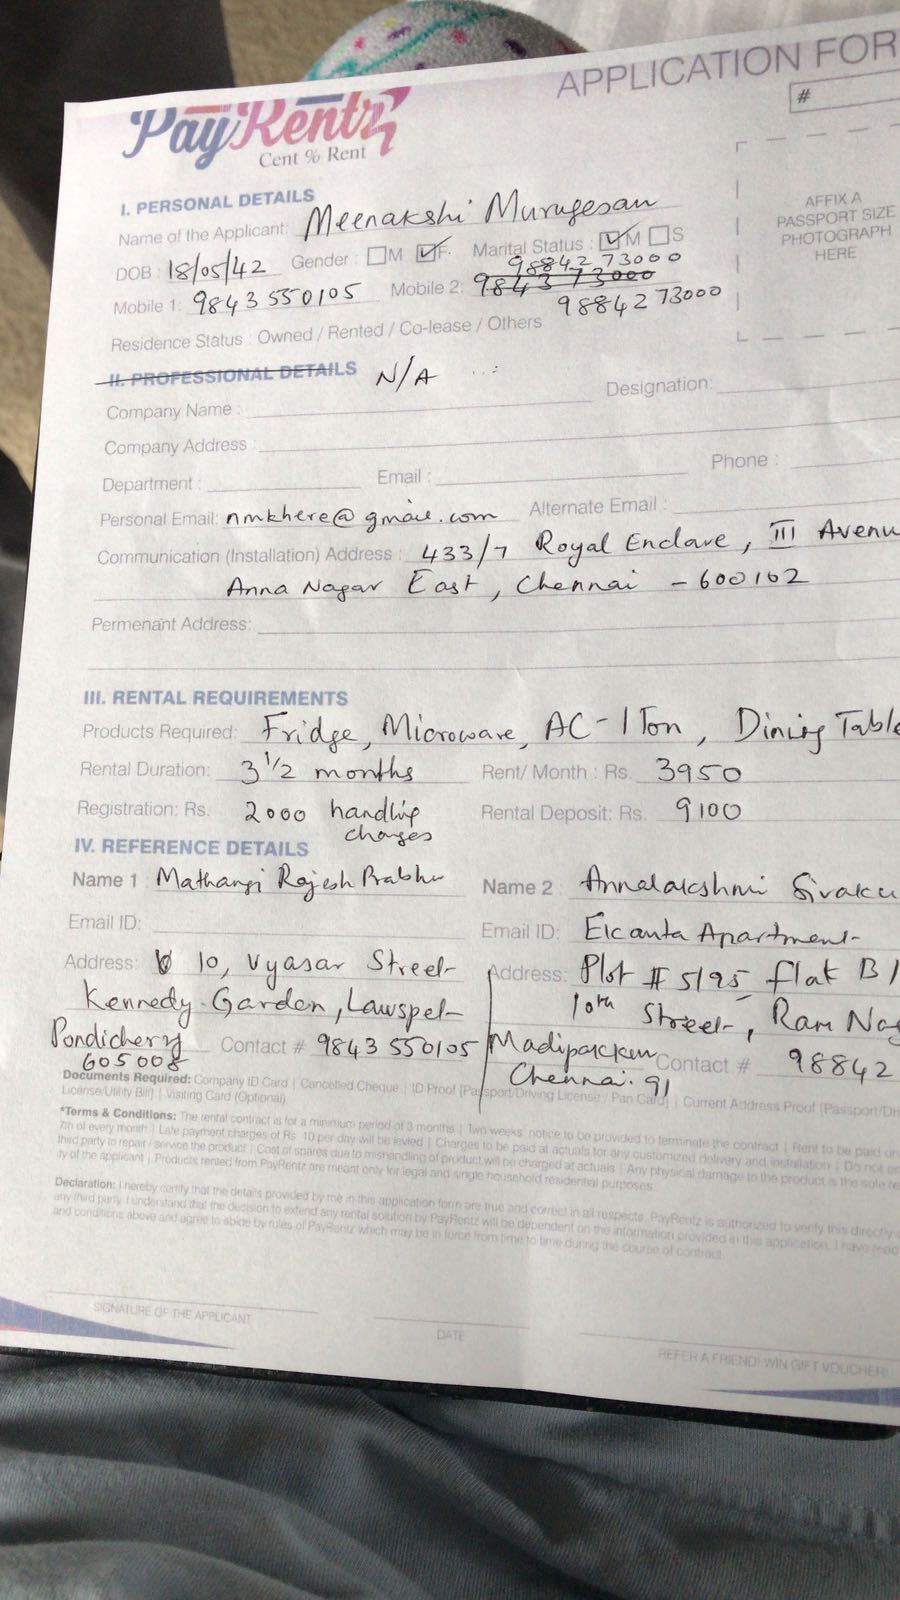 APPLICATION FOR
#
PayRentz
Cent % Rent
AFFIX A
PASSPORT SIZE
PHOTOGRAPH
HERE
I. PERSONAL DETAILS
Name of the Applicant: Meenakshi Murugesan
DOB : 18/05/42 Gender : M F Marital Status : M S
98842 73000
Mobile 1: 9843 550105 Mobile 2: 9843 73000
98842 73000
Residence Status : Owned / Rented / Co-lease / Others
II. PROFESSIONAL DETAILS N/A
Company Name : Designation:
Company Address :
Department : Email : Phone :
Personal Email: nmkhere@gmail.com Alternate Email :
Communication (Installation) Address : 433/7 Royal Enclave, III Avenu
Anna Nagar East, Chennai - 600102
Permenant Address:
III. RENTAL REQUIREMENTS
Products Required: Fridge, Microwave, AC - 1 Ton, Dining Table
Rental Duration: 3 1/2 months Rent/ Month : Rs. 3950
Registration: Rs. 2000 handling Rental Deposit: Rs. 9100
charges
IV. REFERENCE DETAILS
Name 1 : Mathangi Rajesh Prabhu Name 2 : Annalakshmi Sivaku
Email ID: Email ID: Elcanta Apartment
Address: 10, Vyasar Street Address: Plot # 5195 flat B1
Kennedy Garden, Lawspet 10th Street, Ram Nag
Pondicherry Contact # 9843 550105 Madipakkam Contact # 98842
605008 Chennai. 91
Documents Required: Company ID Card | Cancelled Cheque | ID Proof (Passport/Driving License / Pan Card) | Current Address Proof (Passport/Dri
License/Utility Bill) | Visiting Card (Optional)
*Terms & Conditions: The rental contract is for a minimum period of 3 months | Two weeks' notice to be provided to terminate the contract | Rent to be paid on
7th of every month | Late payment charges of Rs. 10 per day will be levied | Charges to be paid at actuals for any customized delivery and installation | Do not en
third party to repair / service the product | Cost of spares due to mishandling of product will be charged at actuals | Any physical damage to the product is the sole re
ty of the applicant | Products rented from PayRentz are meant only for legal and single household residential purposes.
Declaration: I hereby certify that the details provided by me in this application form are true and correct in all respects. PayRentz is authorized to verify this directly
any third party. I understand that the decision to extend any rental solution by PayRentz will be dependent on the information provided in this application. I have read
and conditions above and agree to abide by rules of PayRentz which may be in force from time to time during the course of contract.
SIGNATURE OF THE APPLICANT
DATE
REFER A FRIEND! WIN GIFT VOUCHER!